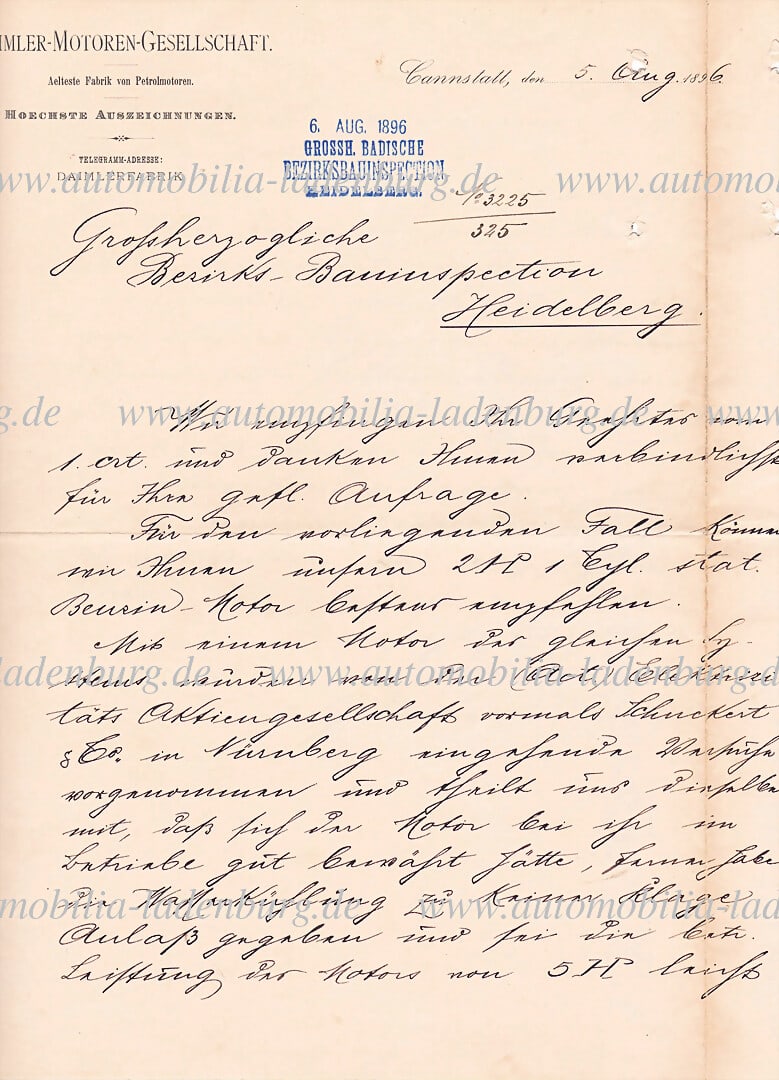 IMLER-MOTOREN-GESELLSCHAFT.
Aelteste Fabrik von Petrolmotoren.
HOECHSTE AUSZEICHNUNGEN.
TELEGRAMM-ADRESSE:
DAIMLERFABRIK
Cannstatt, den 5. Aug. 1896.
6. AUG. 1896
GROSSH. BADISCHE
BEZIRKSBAUINSPECTION
HEIDELBERG.
No 3225
325
www.automobilia-ladenburg.de www.automobilia-
Großherzogliche
Bezirks-Bauinspection
Heidelberg.
rg.de www.automobilia-ladenburg.de www.automo
Wir empfingen Ihr Geehrtes vom
1. crt. und danken Ihnen verbindlichst
für Ihre gefl. Anfrage.
Für den vorliegenden Fall können
wir Ihnen unsern 2 HP 1 Cyl. stat.
Benzin-Motor bestens empfehlen.
Mit einem Motor des gleichen Sy-
-ladenburg.de www.automobilia-ladenburg.de
stems wurden von der
täts Aktiengesellschaft vormals Schuckert
& Co. in Nürnberg eingehende Versuche
vorgenommen und theilt uns dieselbe
mit, daß sich der Motor bei ihr im
Betriebe gut bewährt hätte, ferner habe
die Wasserkühlung zu keiner Klage
omobilia-ladenburg.de www.automobilia-lad
Anlaß gegeben und sei die betr.
Leistung des Motors von 5 HP leicht